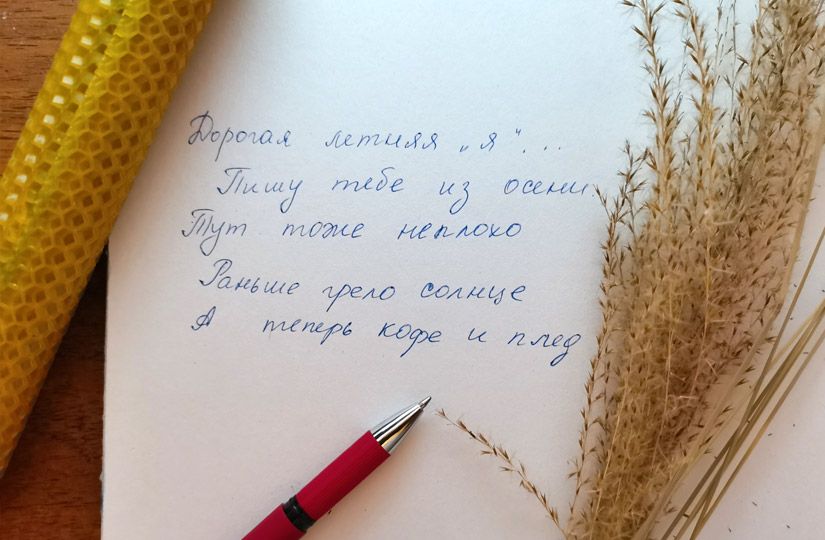 Дорогая летняя „я“...
Пишу тебе из осени
Тут тоже неплохо
Раньше грело солнце
А теперь кофе и плед